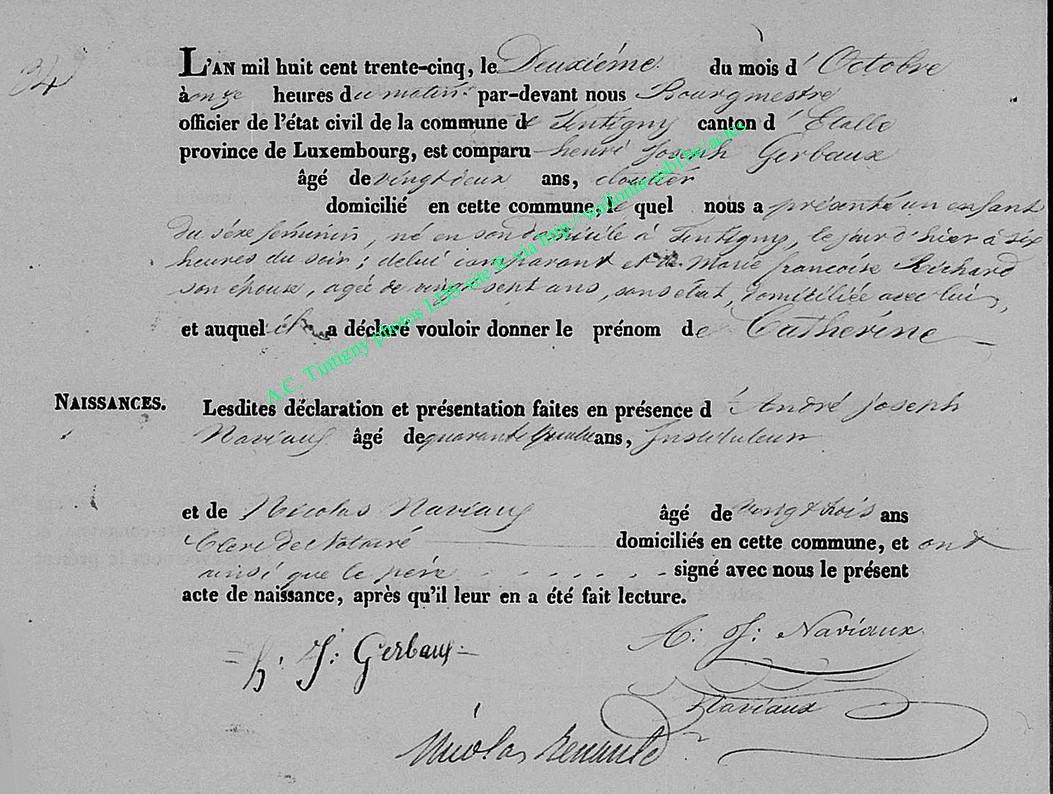 34
L'AN mil huit cent trente-cinq, le Deuxiéme du mois d'Octobre
à onze heures du matin par-devant nous Bourgmestre
officier de l'état civil de la commune de Tintigny canton d'Etalle
province de Luxembourg, est comparu henri Joseph Gerbaux
âgé de vingt deux ans, cloutier
domicilié en cette commune, le quel nous a présenté un enfant
du séxe féminin, né en son domicile à Tintigny, le jour d'hier à six
heures du soir; de lui comparant et de Marie francoise Richard
son épouse, agée de vingt sept ans, sans état, domiciliée avec lui,
et auquel il a déclaré vouloir donner le prénom de Cathérine
NAISSANCES.
Lesdites déclaration et présentation faites en présence d'André Joseph
Naviaux âgé de quarante ans, Instituteur
et de Nicolas Naviaux âgé de vingt trois ans
Clerc de Notaire domiciliés en cette commune, et ont
ainsi que le père signé avec nous le présent
acte de naissance, après qu'il leur en a été fait lecture.
A: J: Naviaux
h: J: Gerbaux
Naviaux
Nicolas
A.C. Tintigny photos LDS site & via http://wallonia.asbl.be/actes